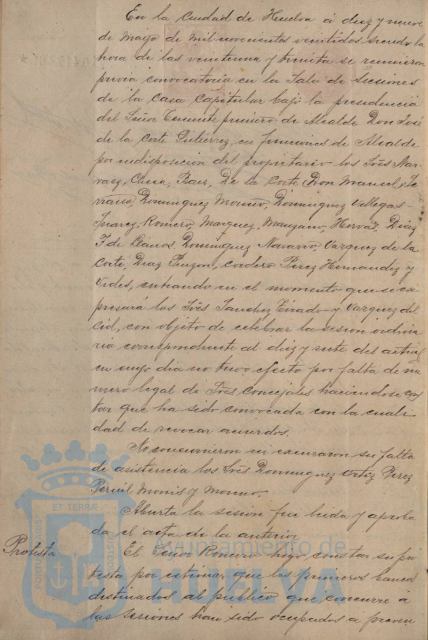 En la Ciudad de Huelva á diez y nueve
de Mayo de mil novecientos veintidos siendo la
hora de las veintiuna y treinta se reunieron
previa convocatoria en la Sala de Sesiones
de la Casa Capitular bajo la presidencia
del Señor Teniente primero de Alcalde Don José
de la Corte Gutierrez, en funciones de Alcalde
por indisposicion del propietario los Sres Nar-
vaez, De la Corte, Don Manuel, Se-
rrano, Dominguez Moreno, Dominguez Villegas
Suarez, Romero, Marquez, Manzano, Hervaz, Diaz
F de Llanos, Dominguez Navarro, Vazquez de la
Corte, Diaz Pinzon, Cordero, Perez Hernandez y
entrando en el momento que se ex-
presará los Sres Sanchez Tirado y Vazquez del
Cid, con objeto de celebrar la sesion ordina-
ria correspondiente al diez y siete del actual
en cuyo dia no tuvo efecto por falta de nu-
mero legal de Sres Concejales haciendose cons-
tar que ha sido convocada con la cuali-
dad de revocar acuerdos.
No concurrieron ni excusaron su falta
de asistencia los Sres Dominguez Ortiz, Perez
Monis y Moreno.
Abierta la sesion fue leida y aproba-
da el acta de la anterior
Protesta El Señor hizo constar su pro-
testa por estimar que los primeros bancos
destinados al público que concurre á
las sesiones han sido ocupados a preven
ET TERRÆ
Ayuntamiento de
HUELVA